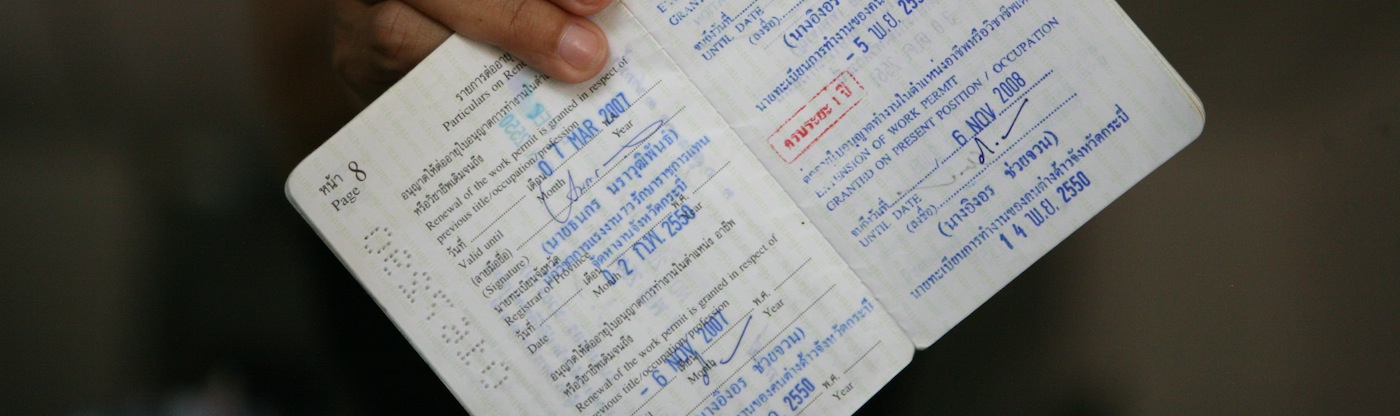 หน้า 8
Page 8
รายการต่ออายุ
Particulars on
อนุญาตให้ต่ออายุใบอนุญาตการทำงานใน
หรือวิชาชีพเดิมจนถึง
Renewal of the work permit is granted in respect of
previous title/occupation/profession
0 1 MAR 2007
วันที่ เดือน
Valid until Month Year
(ลายมือชื่อ)
(Signature)
(นายธนกร นราวุฒิพันธ์)
นายทะเบียนจังหวัด
จัดหางานจังหวัดกระบี่
Registrar of Province
วันที่ เดือน พ.ศ.
0 2 ก.พ. 2550
Date Month Year
อนุญาตให้ต่ออายุใบอนุญาตการทำงานในตำแหน่ง อาชีพ
หรือวิชาชีพเดิมจนถึง
Renewal of the work permit is granted in respect of
previous title/occupation/profession
- 6 NOV 2007
พ.ศ.
Month Year
ช่วยจวน)
งานของคนต่างด้าวจังหวัดกระบี่
2550 พ.ศ.
Year
UNTIL DATE
(ลงชื่อ)
(นางอิงอร
นายทะเบียนการทำงานของคน
- 5 พ.ย.
ครบระยะ 1 ปี
ใบอนุญาตทำงานในตำแหน่งอาชีพหรือวิชาชีพ
EXTENSION OF WORK PERMIT
GRANTED ON PRESENT POSITION / OCCUPATION
6 NOV 2008
UNTIL DATE
(ลงชื่อ)
(นางอิงอร ช่วยจวน)
นายทะเบียนการทำงานของคนต่างด้าวจังหวัดกระบี่
1 4 พ.ย. 2550